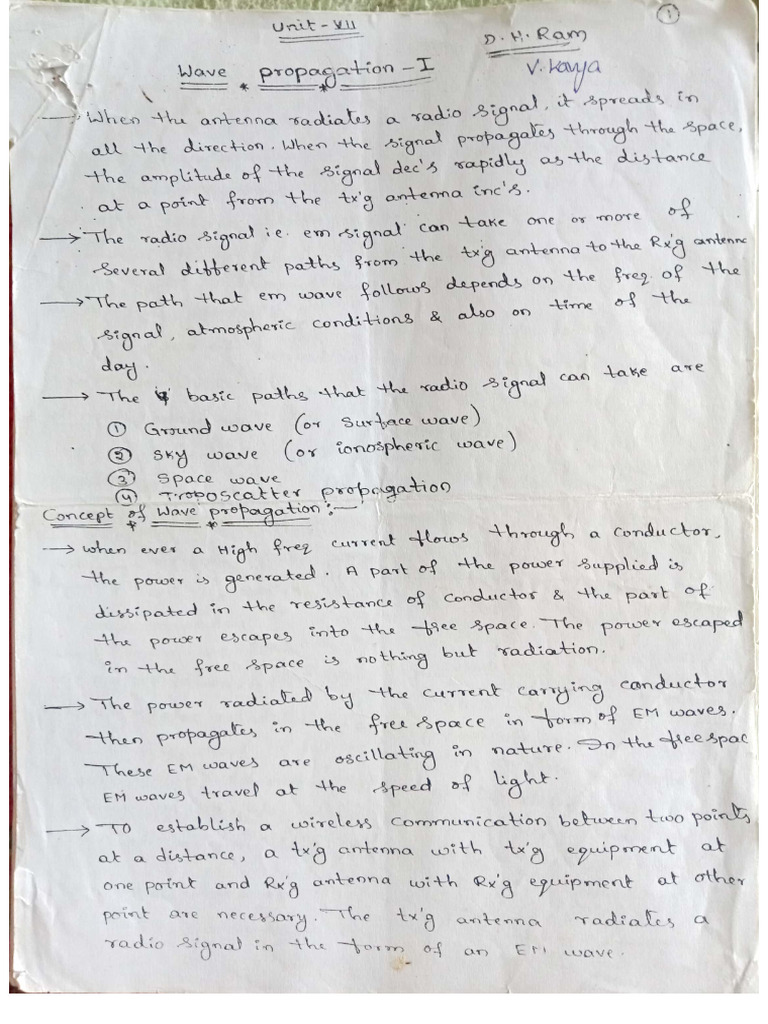 1
Unit-VII
D.H. Ram
Wave propagation-I
V.Kavya
→ When the antenna radiates a radio signal, it spreads in
all the direction. When the signal propagates through the space,
the amplitude of the signal dec's rapidly as the distance
at a point from the tx'g antenna inc's.
→ The radio signal i.e. em signal can take one or more of
several different paths from the tx'g antenna to the Rx'g antenna
→ The path that em wave follows depends on the freq. of the
signal, atmospheric conditions & also on time of the
day.
→ The 4 basic paths that the radio signal can take are
① Ground wave (or surface wave)
② Sky wave (or ionospheric wave)
③ Space wave
④ Troposcatter propagation
Concept of Wave propagation:—
→ When ever a High freq current flows through a conductor,
the power is generated. A part of the power supplied is
dissipated in the resistance of conductor & the part of
the power escapes into the free space. The power escaped
in the free space is nothing but radiation.
→ The power radiated by the current carrying conductor
then propagates in the free space in form of EM waves.
These EM waves are oscillating in nature. In the free spac
EM waves travel at the speed of light.
→ To establish a wireless communication between two points
at a distance, a tx'g antenna with tx'g equipment at
one point and Rx'g antenna with Rx'g equipment at other
point are necessary. The tx'g antenna radiates a
radio signal in the form of an EM wave.